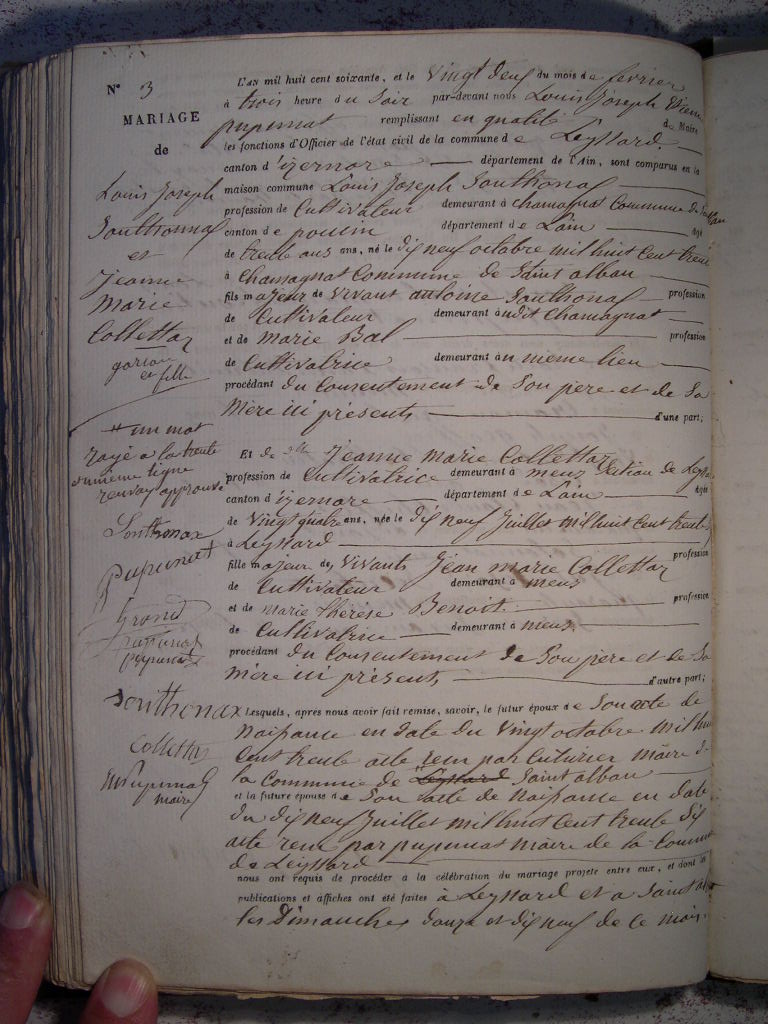 N° 3
MARIAGE
de
Louis Joseph
Southonnax
et
Jeanne
Marie
Collettaz
garçon
et fille
# un mot
rayé a la trente
unieme ligne
renvoy approuvé
Southonax
Pupunat
Grand
pupunat
Southonax
Collettaz
Pupunat
maire
L'an mil huit cent soixante, et le vingt deux du mois de fevrier
à trois heure du Soir par-devant nous Louis Joseph
pupunat remplissant en qualité de Maire
les fonctions d'Officier de l'état civil de la commune de Leyssard
canton d'izernore département de l'Ain, sont comparus en la
maison commune Louis Joseph Southonax
profession de Cultivateur demeurant à chamagnat Commune de
canton de poncin département de L'ain âgé
de trente ans ans, né le dix neuf octobre mil huit Cent trente
à Chamagnat Commune de Saint alban
fils majeur de vivant antoine Southonax profession
de Cultivateur demeurant àudit Chamagnat
et de marie Bal profession
de Cultivatrice demeurant àu même lieu
procédant du Consentement de Son pere et de Sa
Mère ici présents d'une part;
Et de dlle Jeanne marie Collettaz
profession de Cultivatrice demeurant à meux Section de
canton d'izernore département de L'ain âgée
de vingt quatre ans, née le dix neuf Juillet mil huit Cent trente
à Leyssard
fille majeur des vivants Jean marie Collettaz profession
de Cultivateur demeurant à meux
et de marie thérèse Benoit profession
de Cultivatrice demeurant à meux
procédant du Consentement de Son pere et de Sa
mère ici présent, d'autre part;
Lesquels, après nous avoir fait remise, savoir, le futur époux de Son acte de
Naissance en date du vingt octobre mil huit
Cent trente acte reçu par maire de
la Commune de Leyssard Saint alban
et la future épouse de Son acte de Naissance en date
du dix neuf Juillet mil huit Cent trente Six
acte reçu par pupunat maire de la Commune
de Leyssard
nous ont requis de procéder à la célébration du mariage projeté entre eux, et dont les
publications et affiches ont été faites à Leyssard et a Saint alban
les Dimanches douze et dix neuf de Ce mois.